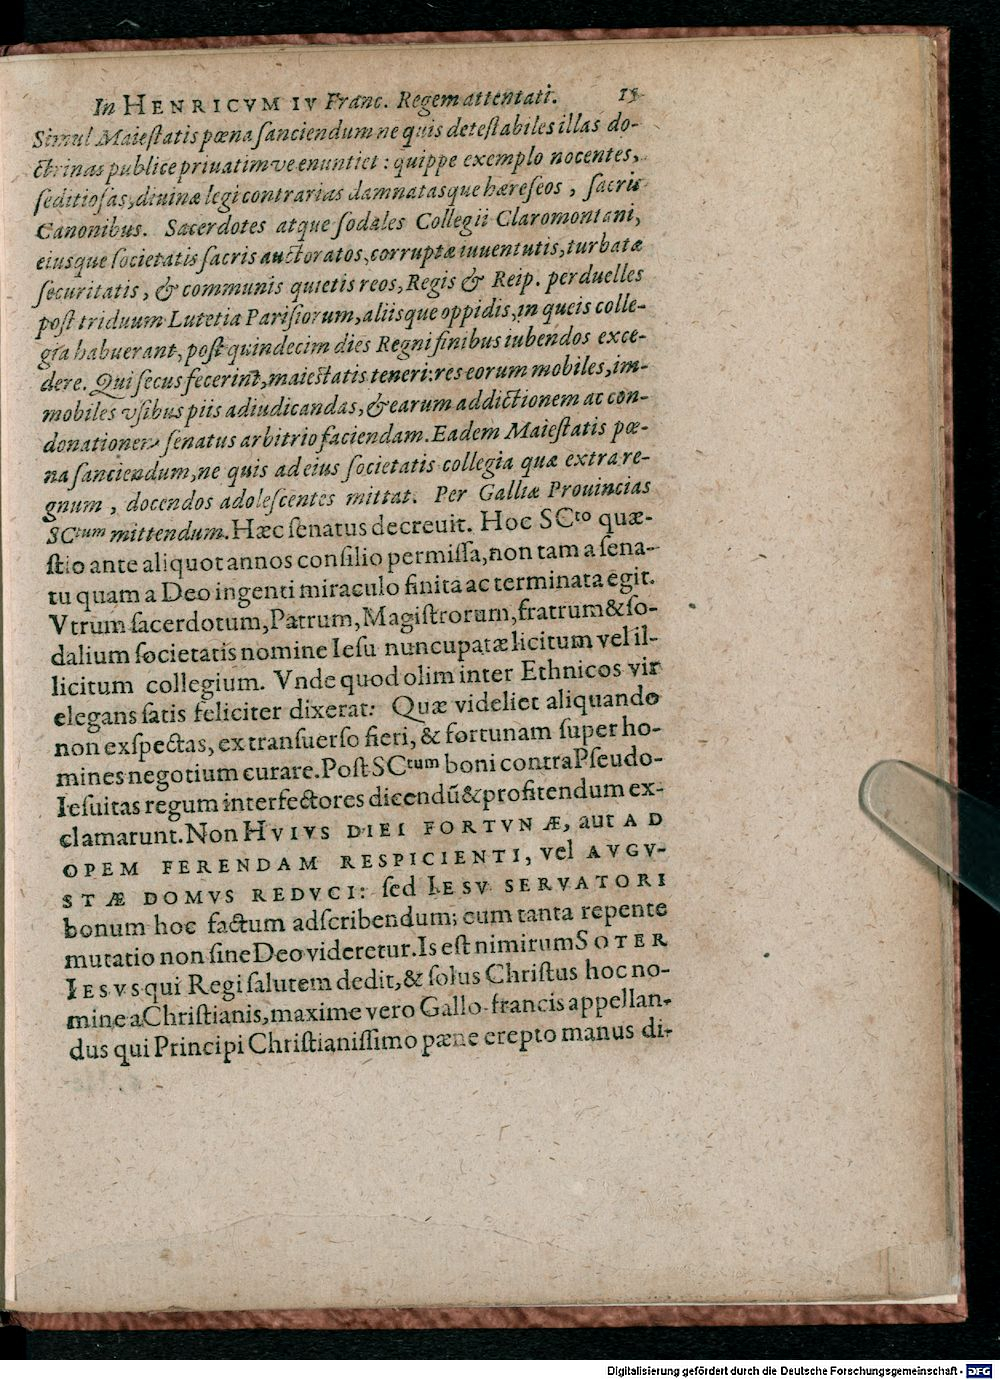 In HENRICVM IV Franc. Regem attentati. 15
Simul Maieſtatis pœna ſanciendum ne quis deteſtabiles illas do-
ctrinas publice priuatimve enuntiet: quippe exemplo nocentes,
ſeditioſas, diuinæ legi contrarias damnatasque hæreſeos, ſacris
Canonibus. Sacerdotes atque ſodales Collegii Claromontani,
eiusque ſocietatis ſacris auctoratos, corruptæ iuuentutis, turbatæ
ſecuritatis, & communis quietis reos, Regis & Reip. perduelles
poſt triduum Lutetia Pariſiorum, aliisque oppidis, in queis colle-
gia habuerant, poſt quindecim dies Regni finibus iubendos exce-
dere. Qui ſecus fecerint, maieſtatis teneri: res eorum mobiles, im-
mobiles vſibus piis adiudicandas, & earum addictionem ac con-
donationem ſenatus arbitrio faciendam. Eadem Maieſtatis pœ-
na ſanciendum, ne quis ad eius ſocietatis collegia quæ extra re-
gnum, docendos adoleſcentes mittat. Per Galliæ Prouincias
SCtum mittendum. Hæc ſenatus decreuit. Hoc SCto quæ-
ſtio ante aliquot annos conſilio permiſſa, non tam a ſena-
tu quam a Deo ingenti miraculo finita ac terminata egit.
Vtrum ſacerdotum, Patrum, Magiſtrorum, fratrum & ſo-
dalium ſocietatis nomine Ieſu nuncupatæ licitum vel il-
licitum collegium. Vnde quod olim inter Ethnicos vir
elegans ſatis feliciter dixerat: Quæ videliet aliquando
non exſpectas, ex tranſuerſo fieri, & fortunam ſuper ho-
mines negotium curare. Poſt SCtum boni contra Pſeudo-
Ieſuitas regum interfectores dicendũ & profitendum ex-
clamarunt. Non HVIVS DIEI FORTVNÆ, aut AD
OPEM FERENDAM RESPICIENTI, vel AVGV-
STÆ DOMVS REDVCI: ſed IESV SERVATORI
bonum hoc factum adſcribendum; cum tanta repente
mutatio non ſine Deo videretur. Is eſt nimirum SOTER
IESVS qui Regi ſalutem dedit, & ſolus Chriſtus hoc no-
mine a Chriſtianis, maxime vero Gallo-francis appellan-
dus qui Principi Chriſtianiſſimo pæne erepto manus di-
Digitalisierung gefördert durch die Deutsche Forschungsgemeinschaft - DFG